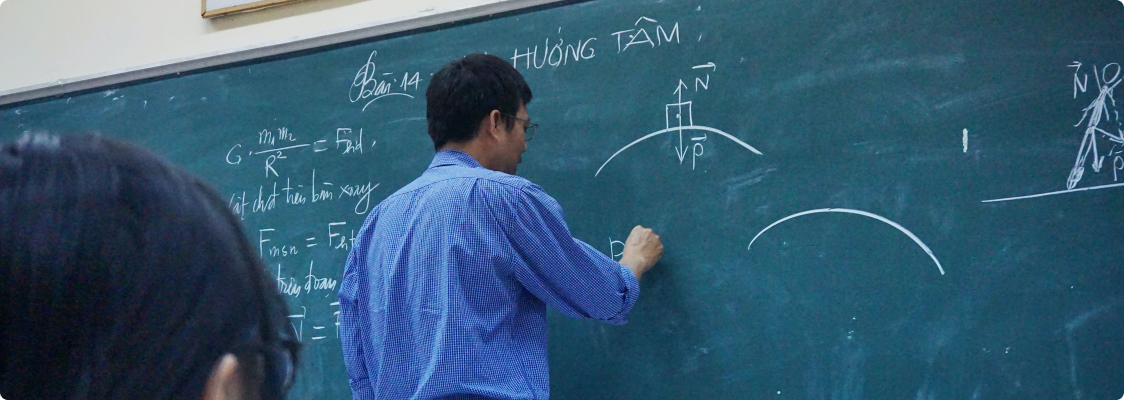 Bài 14 HƯỚNG TÂM
G. m₁m₂ / R² = Fhd.
vật chđ trên bàn xoay
Fmsn = Fht
trên đoạn
N⃗ =
N⃗
P⃗
P
N⃗
P⃗